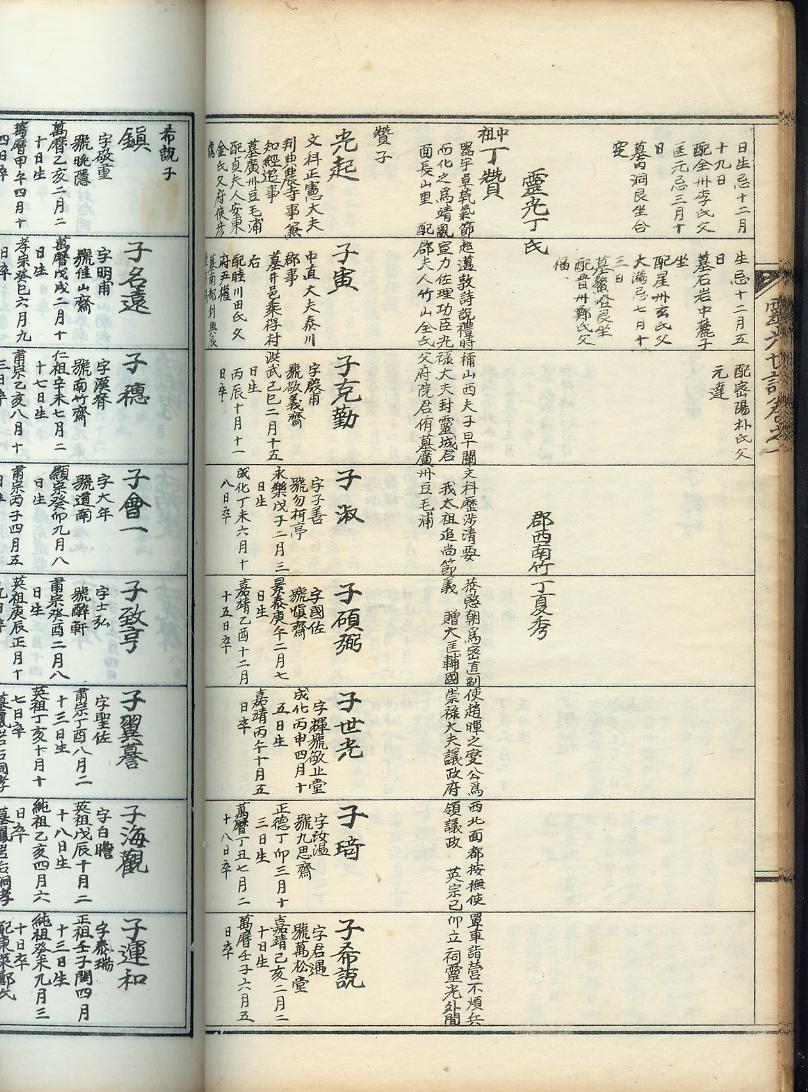 靈光世譜卷之一
日生忌十二月
十九日
配全州李氏父
匡元忌三月十
日
墓芮洞艮坐合
窆
生忌十二月五
日
墓石岩中麓子
坐
配星州玄氏父
大滿忌七月十
三日
配晋州鄭氏父
配密陽朴氏父
元達
靈光丁氏
郡西南竹丁夏秀
中祖丁贊
器宇卓犖氣節超邁敦詩説禮時稱山西夫子早闡文科歷涉清要 恭愍朝爲密直副使趙暉之變公爲西北面都按撫使單車詣營不煩兵
而化之爲靖亂宣力佐理功臣光祿大夫封靈城君 我太祖追尚節義 贈大匡輔國崇祿大夫議政府領議政 英宗己卯立祠靈光外間
面長山里 配郡夫人竹山全氏父府院君侑墓廣州豆毛浦
贊子
光起
文科正憲大夫
判典農寺事兼
知經筵事
墓廣州豆毛浦
配貞夫人安東
子寅
中直大夫泰川
郡事
墓井邑乗桴村
右
配睦川田氏父
府尹權
子克勤
字嚴甫
號敬義齋
洪武己巳二月十五
日生
丙辰十月十一
日卒
子淑
字子善
號勿柯亭
永樂戊子二月三
日生
成化丁未六月十
八日卒
子碩弼
字國佐
號愼齋
景泰庚午二月七
日生
嘉靖乙酉十二月
十五日卒
子世光
字輝號敬止堂
成化丙申四月十
五日生
嘉靖丙午十月五
日卒
子琦
字汝温
號九思齋
正德丁卯三月十
三日生
萬曆丁丑七月二
十八日卒
子希説
字君遇
號萬松堂
嘉靖己亥二月二
十日生
萬曆壬子六月五
日卒
希説子
鎭
字敬重
號晩隱
萬曆乙亥二月二
十日生
萬曆甲午四月十
四日卒
子名遠
字明甫
號佳山齋
萬曆戊戌二月十
日生
孝宗癸巳六月九
日卒
子穗
字漢脊
號南竹齋
仁祖辛未七月二
十七日生
肅宗乙亥八月十
三日卒
子會一
字大年
號道南
顯宗癸卯九月八
日生
肅宗丙子四月五
日卒
子致亨
字士弘
號醉軒
肅宗癸酉二月八
日生
英祖庚辰正月十
九日卒
子翼謩
字聖佐
肅宗丁酉八月二
十三日生
英祖丁亥十月十
七日卒
子海觀
字白瞻
英祖戊辰十月二
十八日生
純祖乙亥四月六
日卒
子運和
字泰瑞
正祖壬子閏四月
十三日生
純祖癸未九月三
十日卒
配東萊鄭氏